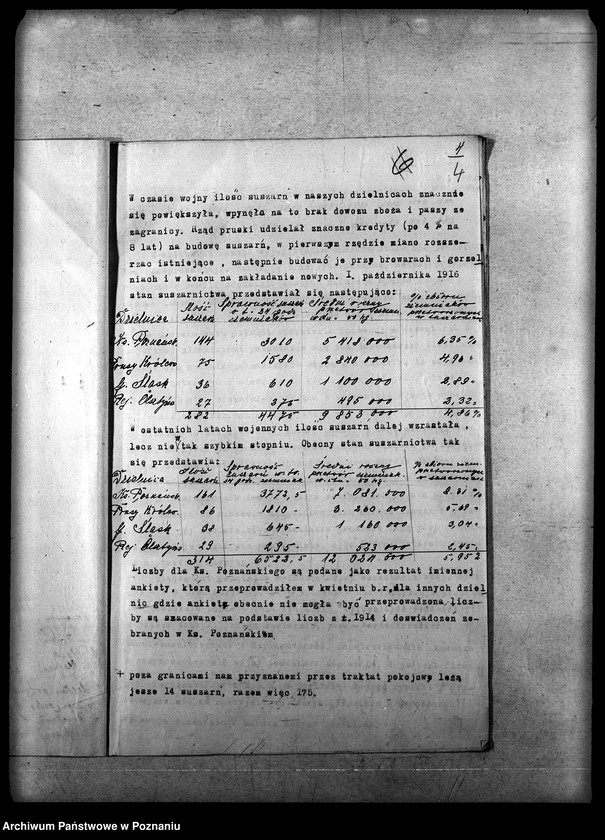 4
4
W czasie wojny ilość suszarń w naszych dzielnicach znacznie
się powiększyła, wpynęło na to brak dowozu zboża i paszy ze
zagranicy. Rząd pruski udzielał znaczne kredyty (po 4 % na
8 lat) na budowę suszarń, w pierwszym rzędzie miano rozsze-
rzać istniejące , następnie budować je przy browarach i gorzel
niach i w końcu na zakładanie nowych. I. października 1916
stan suszarnictwa przedstawiał się następująco:
Dzielnica Ilość suszarń Sprawność suszarń w t. 24 godz. ziemniaków
Ks. Poznańsk. 144 3010 5 418 000 6,35 %
Prusy Królew. 75 1580 2 840 000 4,96 "
G. Śląsk 36 610 1 100 000 2,89 "
Rej. Olsztyńs 27 375 495 000 2,32 "
282 4475 9 853 000 4,86 %
W ostatnich latach wojennych ilość suszarn dalej wzrastała ,
lecz nie w tak szybkim stopniu. Obecny stan suszarnictwa tak
się przedstawia:
Dzielnica Ilość suszarń Sprawność suszarń w to. 24 godz. ziemniak
Ks. Poznańsk. 161 3773,5 7. 081. 000 8.31 %
Prusy Królew. 86 1810 - 3. 260. 000 5,69 "
G. Śląsk 38 645 - 1 160 000 3,04 "
Rej Olsztyńs 29 295 - 523 000 2,45 "
314 6523,5 12 024 000 5,952
Liczby dla Ks. Poznańskiego są podane jako rezultat imiennej
ankiety, którą przeprowadziłem w kwietniu b.r, dla innych dziel
nic gdzie ankieta obecnie nie mogła być przeprowadzona licz-
by są szacowane na podstawie liczb z r. 1914 i doswiadczeń ze-
branych w Ks. Poznańskiem
+ poza granicami nam przyznanemi przez traktat pokojowy leżą
jesze 14 suszarń, razem więc 175.
Archiwum Państwowe w Poznaniu